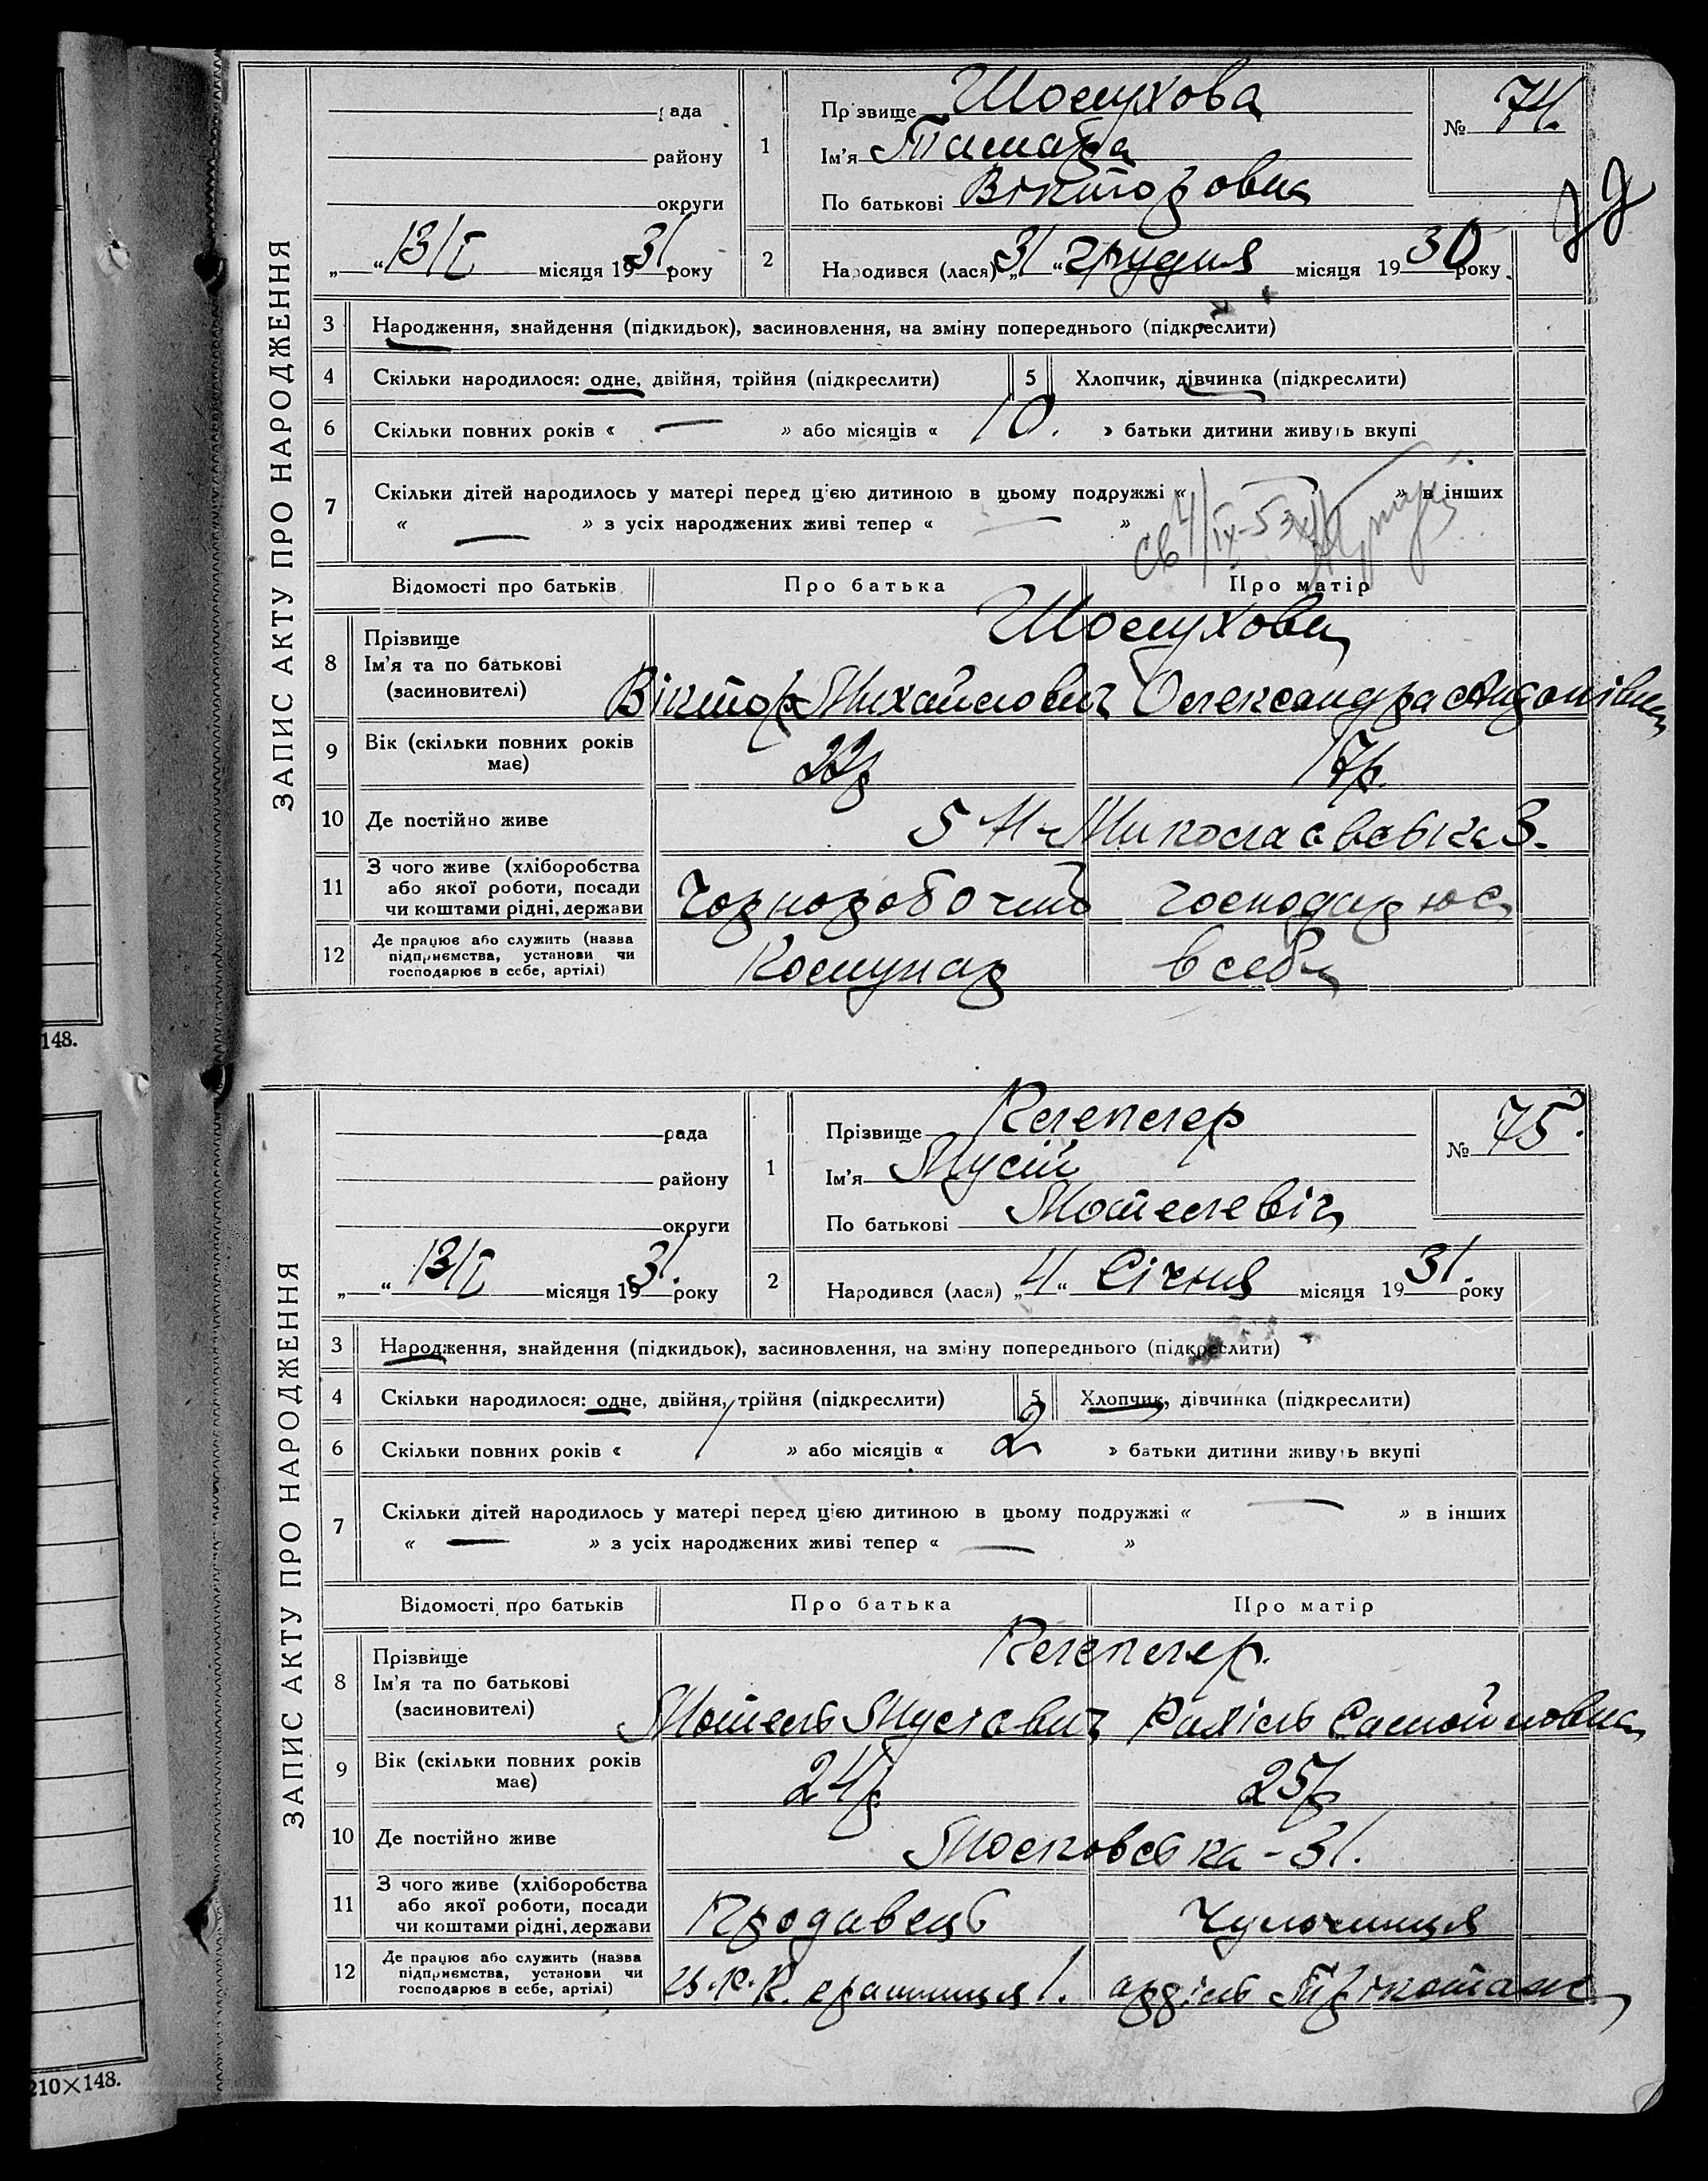 ЗАПИС АКТУ ПРО НАРОДЖЕННЯ
рада
району
округи
„ “ 13/I місяця 1931 року
1
Прізвище Шомухова
Ім'я Тамара
По батькові Вікторовна
№ 74.
2
Народився (лася) „31“ грудня місяця 1930 року
3 Народження, знайдення (підкидьок), засиновлення, на зміну попереднього (підкреслити)
4 Скільки народилося: одне, двійня, трійня (підкреслити)
5 Хлопчик, дівчинка (підкреслити)
6 Скільки повних років « — » або місяців « 10. » батьки дитини живуть вкупі
7 Скільки дітей народилось у матері перед цією дитиною в цьому подружжі « — » в інших
« — » з усіх народжених живі тепер « — »
Відомості про батьків Про батька Про матір
8 Прізвище
Ім'я та по батькові
(засиновителі)
Шомухова
Віктор Михайлович Олександра Андонівна
9 Вік (скільки повних років має) 22р 17р.
10 Де постійно живе 5 Н-Миколаєвськ 3.
11 З чого живе (хліборобства або якої роботи, посади чи коштами рідні, держави
Чорноробочий господарює
12 Де працює або служить (назва підприємства, установи чи господарює в себе, артілі)
Комунар в себе
148.
ЗАПИС АКТУ ПРО НАРОДЖЕННЯ
рада
району
округи
„ “ 13/I місяця 1931. року
1
Прізвище Кеплер
Ім'я Мусій
По батькові Мотелевіч
№ 75.
2
Народився (лася) „4“ Січня місяця 1931. року
3 Народження, знайдення (підкидьок), засиновлення, на зміну попереднього (підкреслити)
4 Скільки народилося: одне, двійня, трійня (підкреслити)
5 Хлопчик, дівчинка (підкреслити)
6 Скільки повних років « 1 » або місяців « 2 » батьки дитини живуть вкупі
7 Скільки дітей народилось у матері перед цією дитиною в цьому подружжі « — » в інших
« — » з усіх народжених живі тепер « — »
Відомості про батьків Про батька Про матір
8 Прізвище
Ім'я та по батькові
(засиновителі)
Мотель Мусієвич Рахіль Самойловна
9 Вік (скільки повних років має) 24р 25р
10 Де постійно живе Московська - 31.
11 З чого живе (хліборобства або якої роботи, посади чи коштами рідні, держави
Продавець Чулочниця
12 Де працює або служить (назва підприємства, установи чи господарює в себе, артілі)
Ц.Р.К. крамниця 1. артіль Трікотаж
210×148.